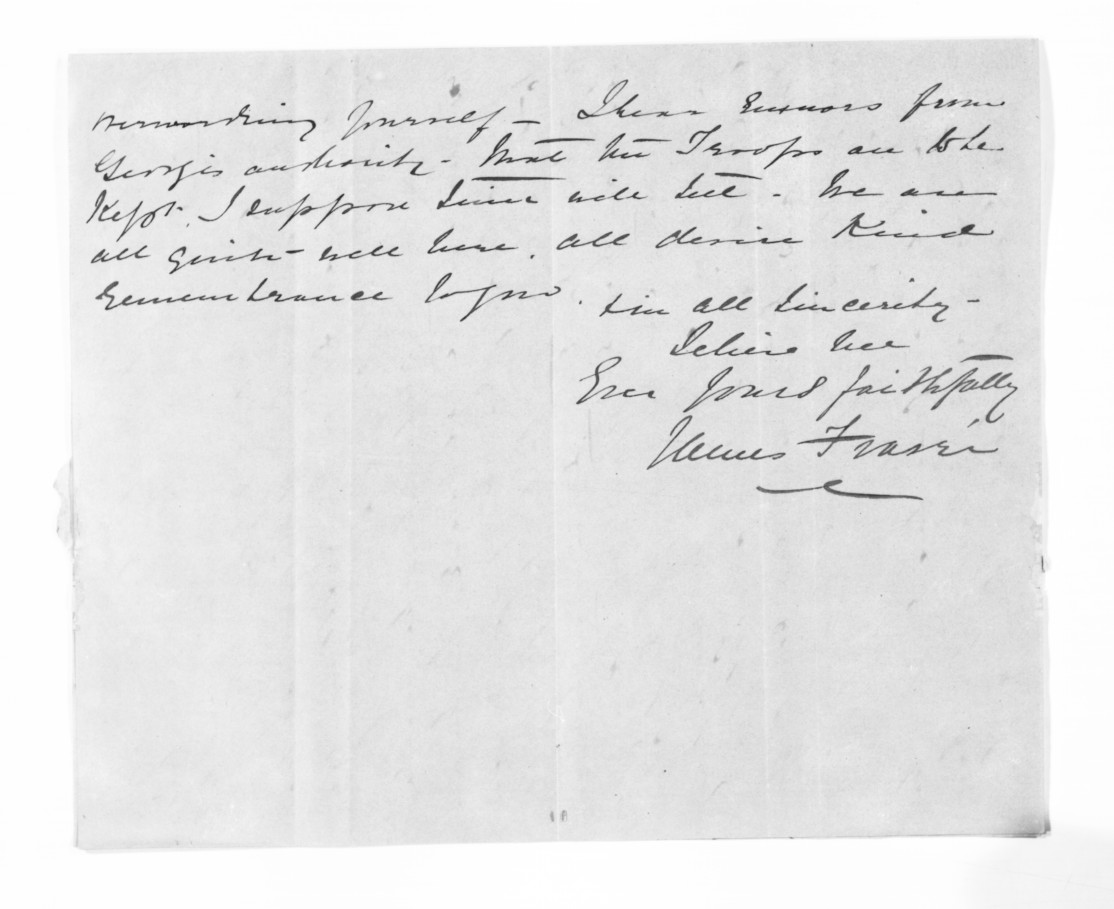 overworking yourself – I hear rumors from
Georges authority – that the Troops are to be
Kept. I suppose time will tell – We are
all quite well here. All desire Kind
remembrance to you.
& in all sincerity –
Believe me
Ever yours faithfully
James Fraser